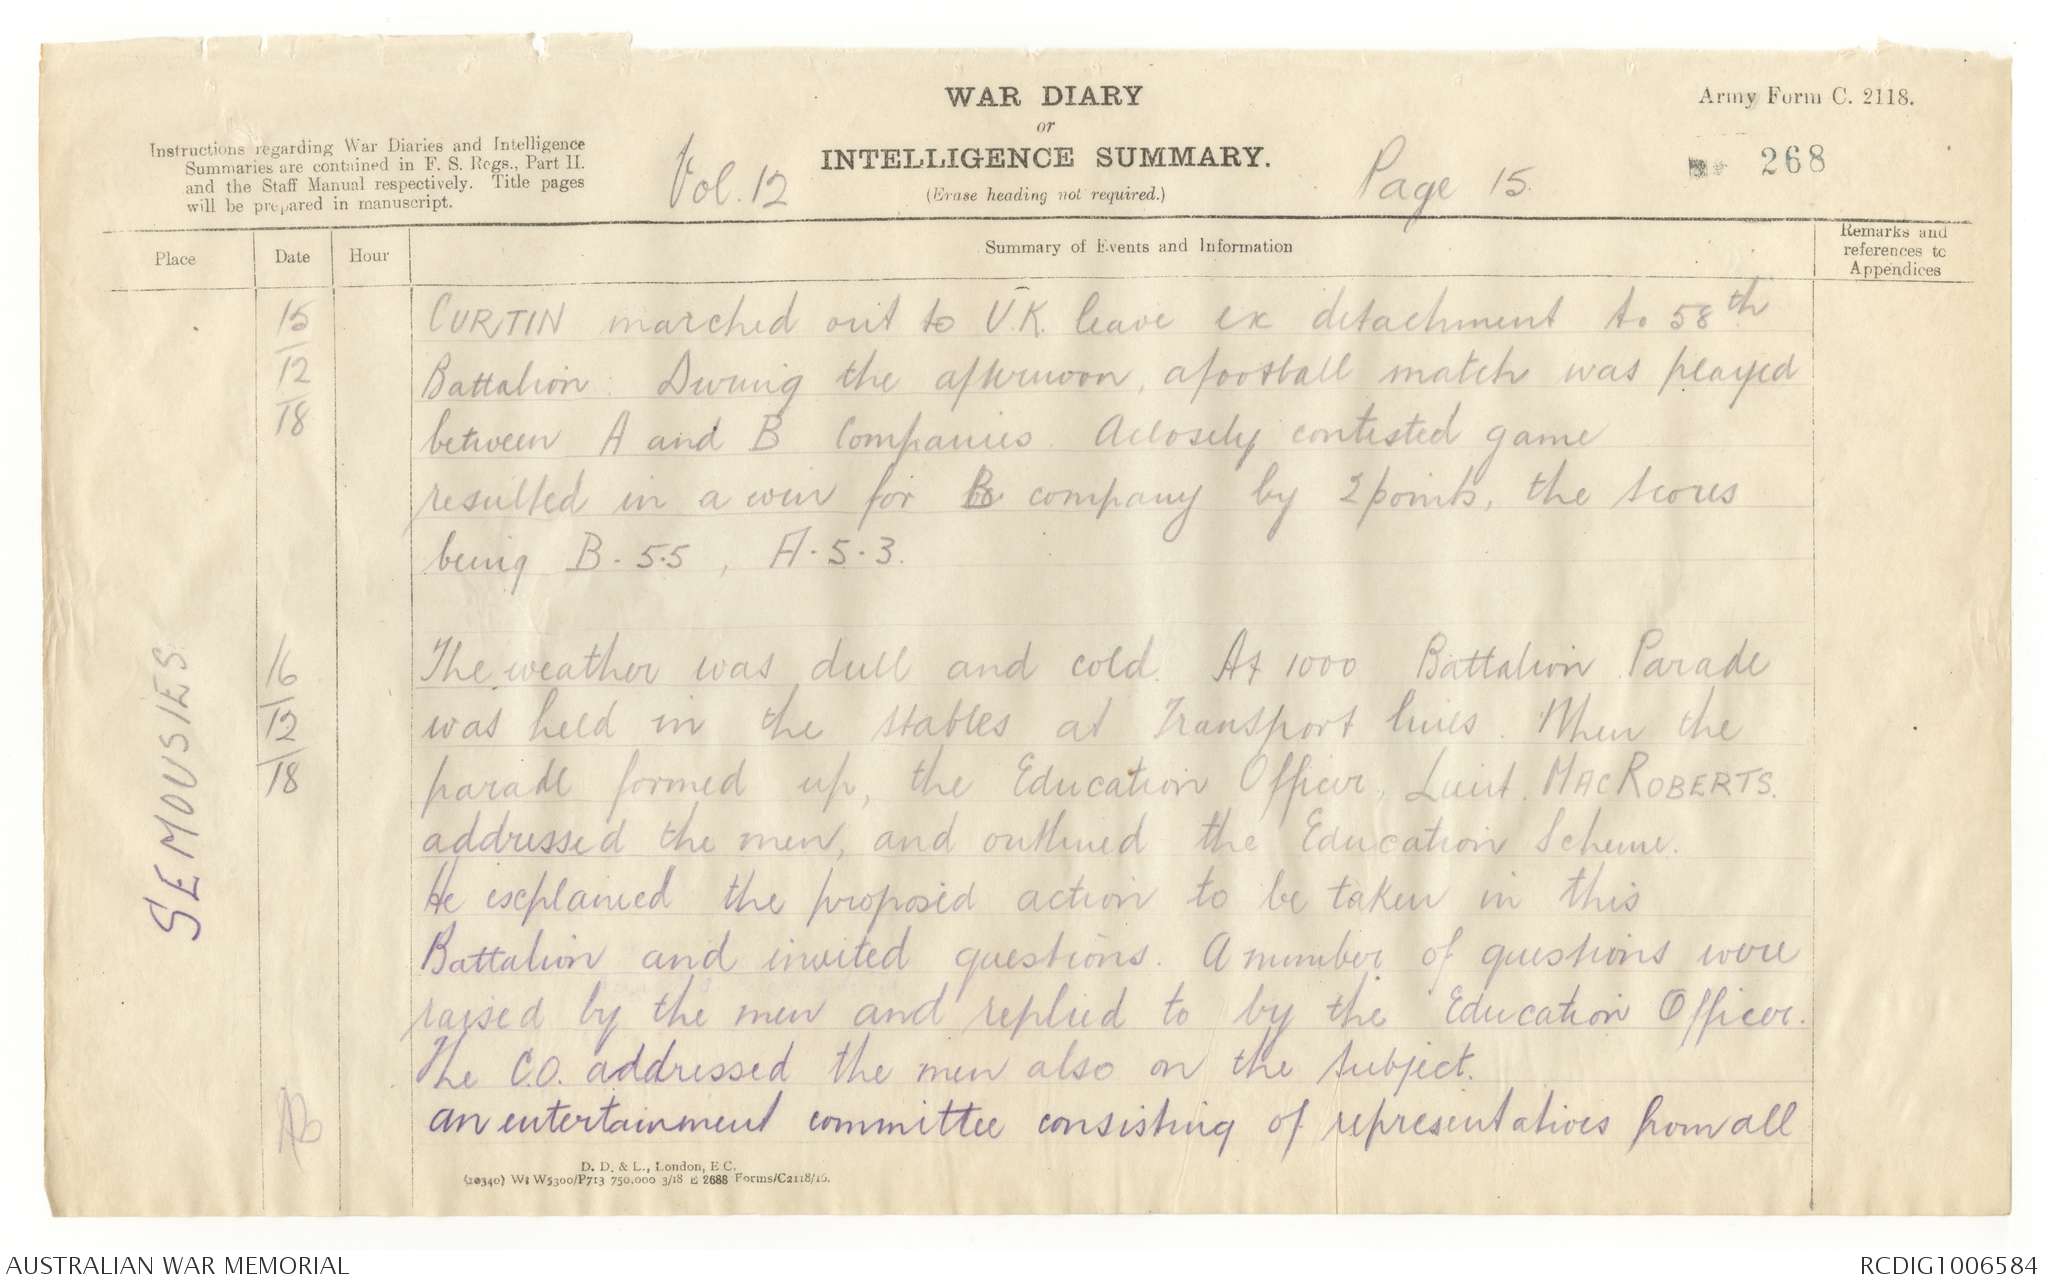 WAR DIARY
or
INTELLIGENCE SUMMARY.
(Erase heading not required.)
Army Form C. 2118.
Instructions regarding War Diaries and Intelligence
Summaries are contained in F. S. Regs., Part II.
and the Staff Manual respectively. Title pages
will be prepared in manuscript.
Vol. 12
Page 15.
268
Place
Date
Hour
Summary of Events and Information
Remarks and
references to
Appendices
SEMOUSIES
15
12
18
CURTIN marched out to U.K. leave ex detachment to 58th
Battalion. During the afternoon, a football match was played
between A and B Companies. A closely contested game
resulted in a win for B company by 2 points, the scores
being B. 5.5, A. 5.3.
16
12
18
The weather was dull and cold. At 1000 Battalion Parade
was held in the stables at Transport lines. When the
parade formed up, the Education Officer, Lieut. MACROBERTS.
addressed the men, and outlined the Education Scheme.
He explained the proposed action to be taken in this
Battalion and invited questions. A number of questions were
raised by the men and replied to by the Education Officer.
The C.O. addressed the men also on the subject.
An entertainment committee consisting of representatives from all
D. D. & L., London, E.C.
(20340) Wt W5300/P713 750,000 3/18 E 2688 Forms/C2118/16.
AUSTRALIAN WAR MEMORIAL
RCDIG1006584